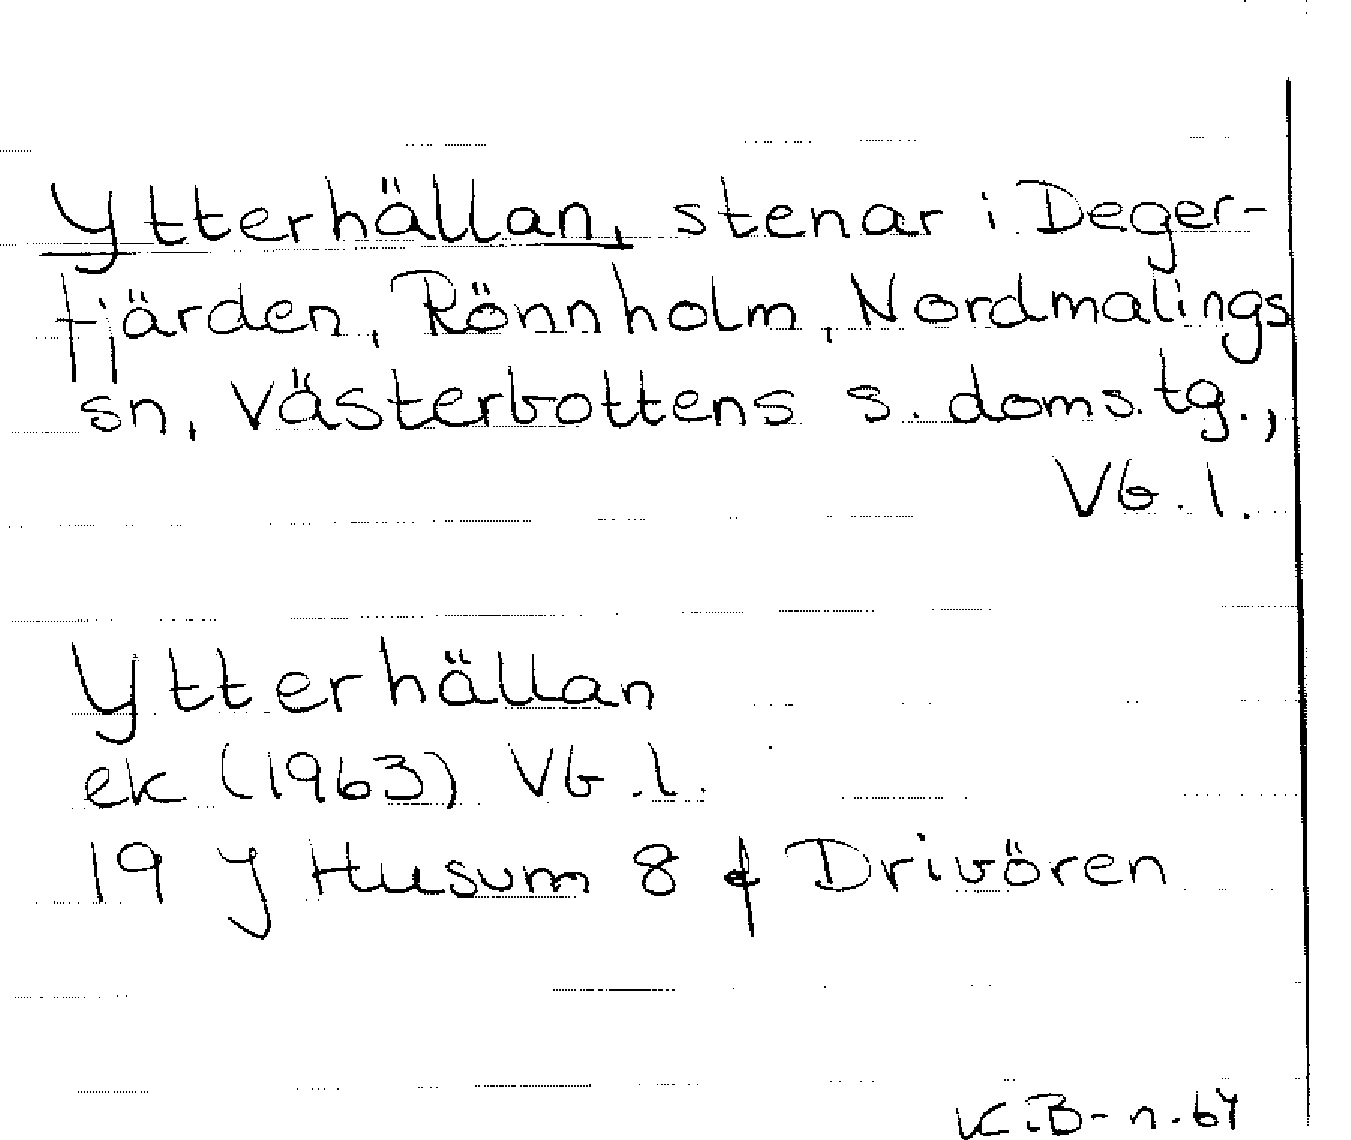 Ytterhällan, stenar i Deger-
fjärden, Rönnholm, Nordmalings
sn, Västerbottens s. doms.tg.,
Vb. l.
Ytterhällan
ek (1963) Vb. l.
19 J Husum 8 f Drivören
K.B-n.64